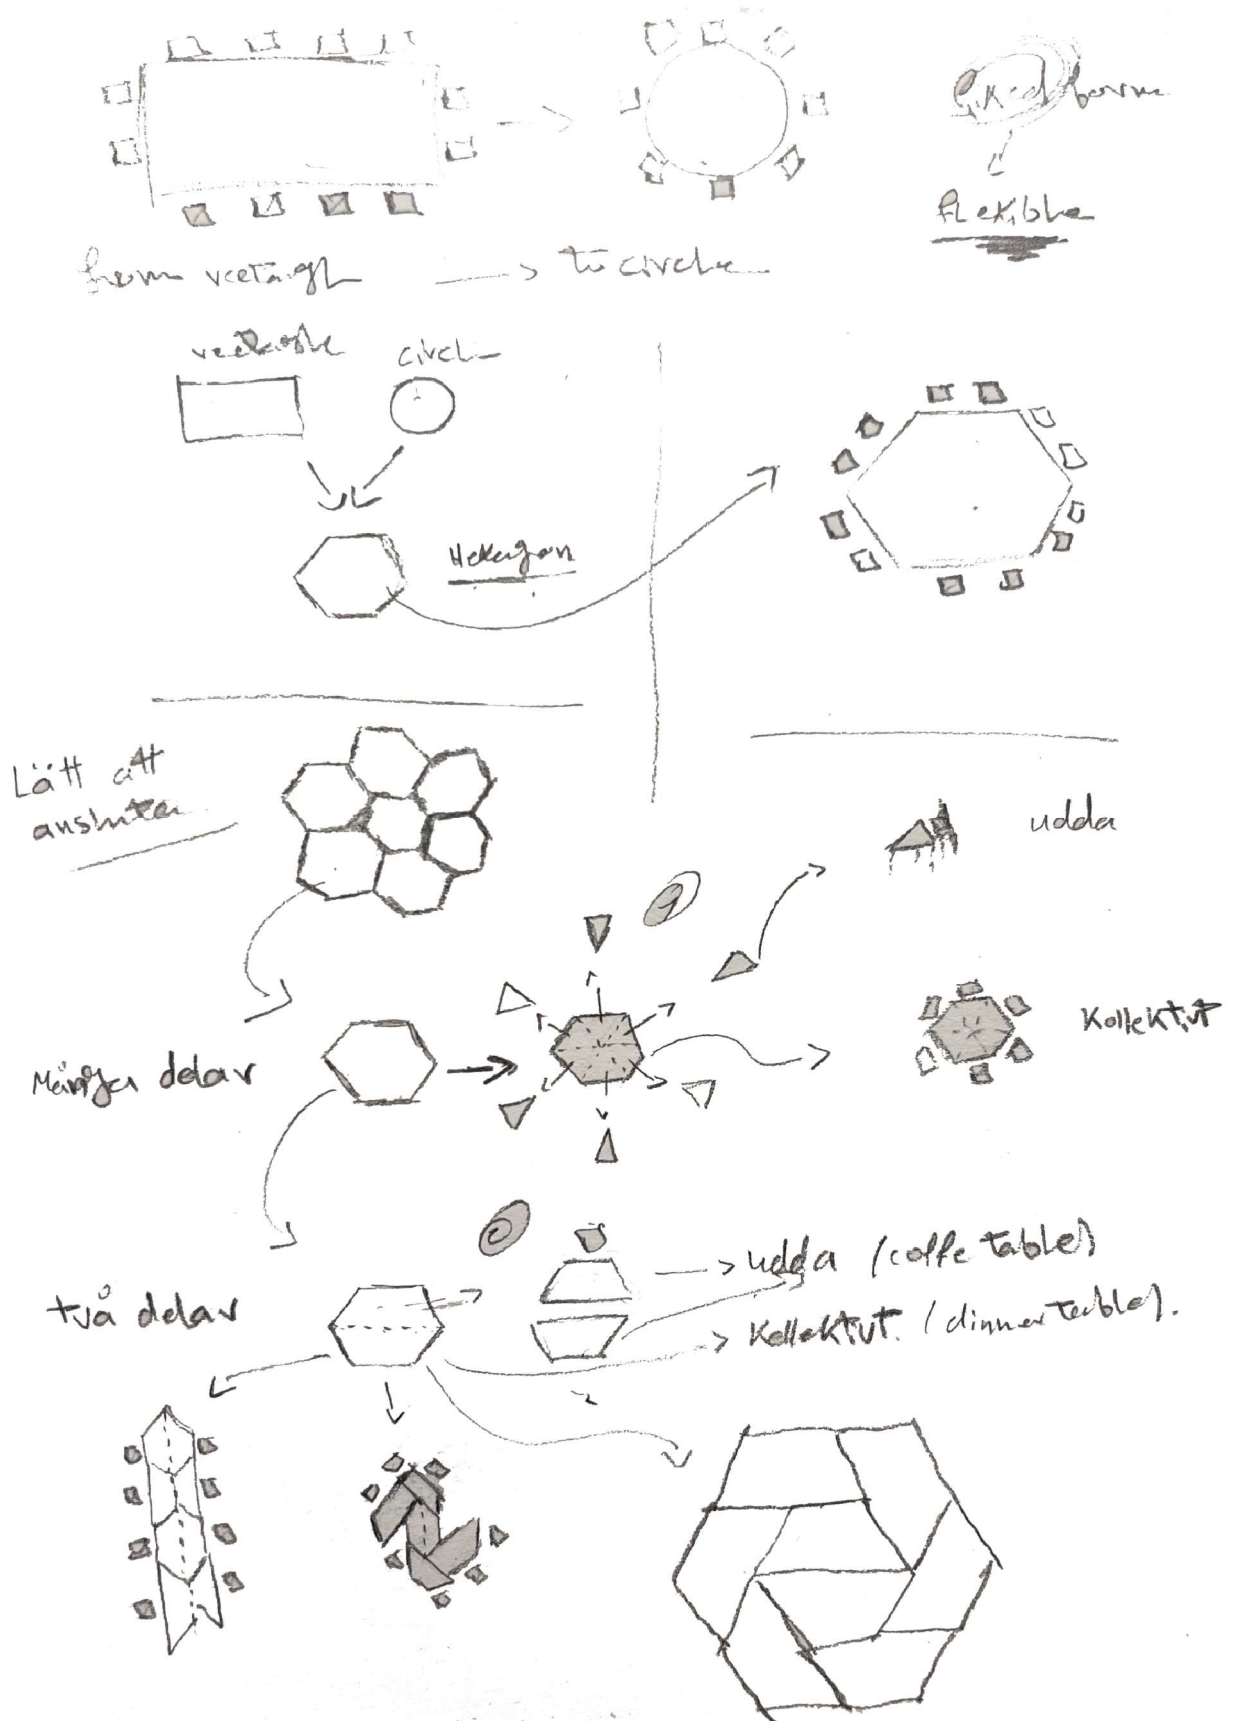 fixed form
flexible
from rectangl → to circle
circl
Hexagon
Lätt att
ansluta
udda
Kollektivt
Många delar
två delar
→ udda (coffe table)
→ Kollektivt. (dinner table).